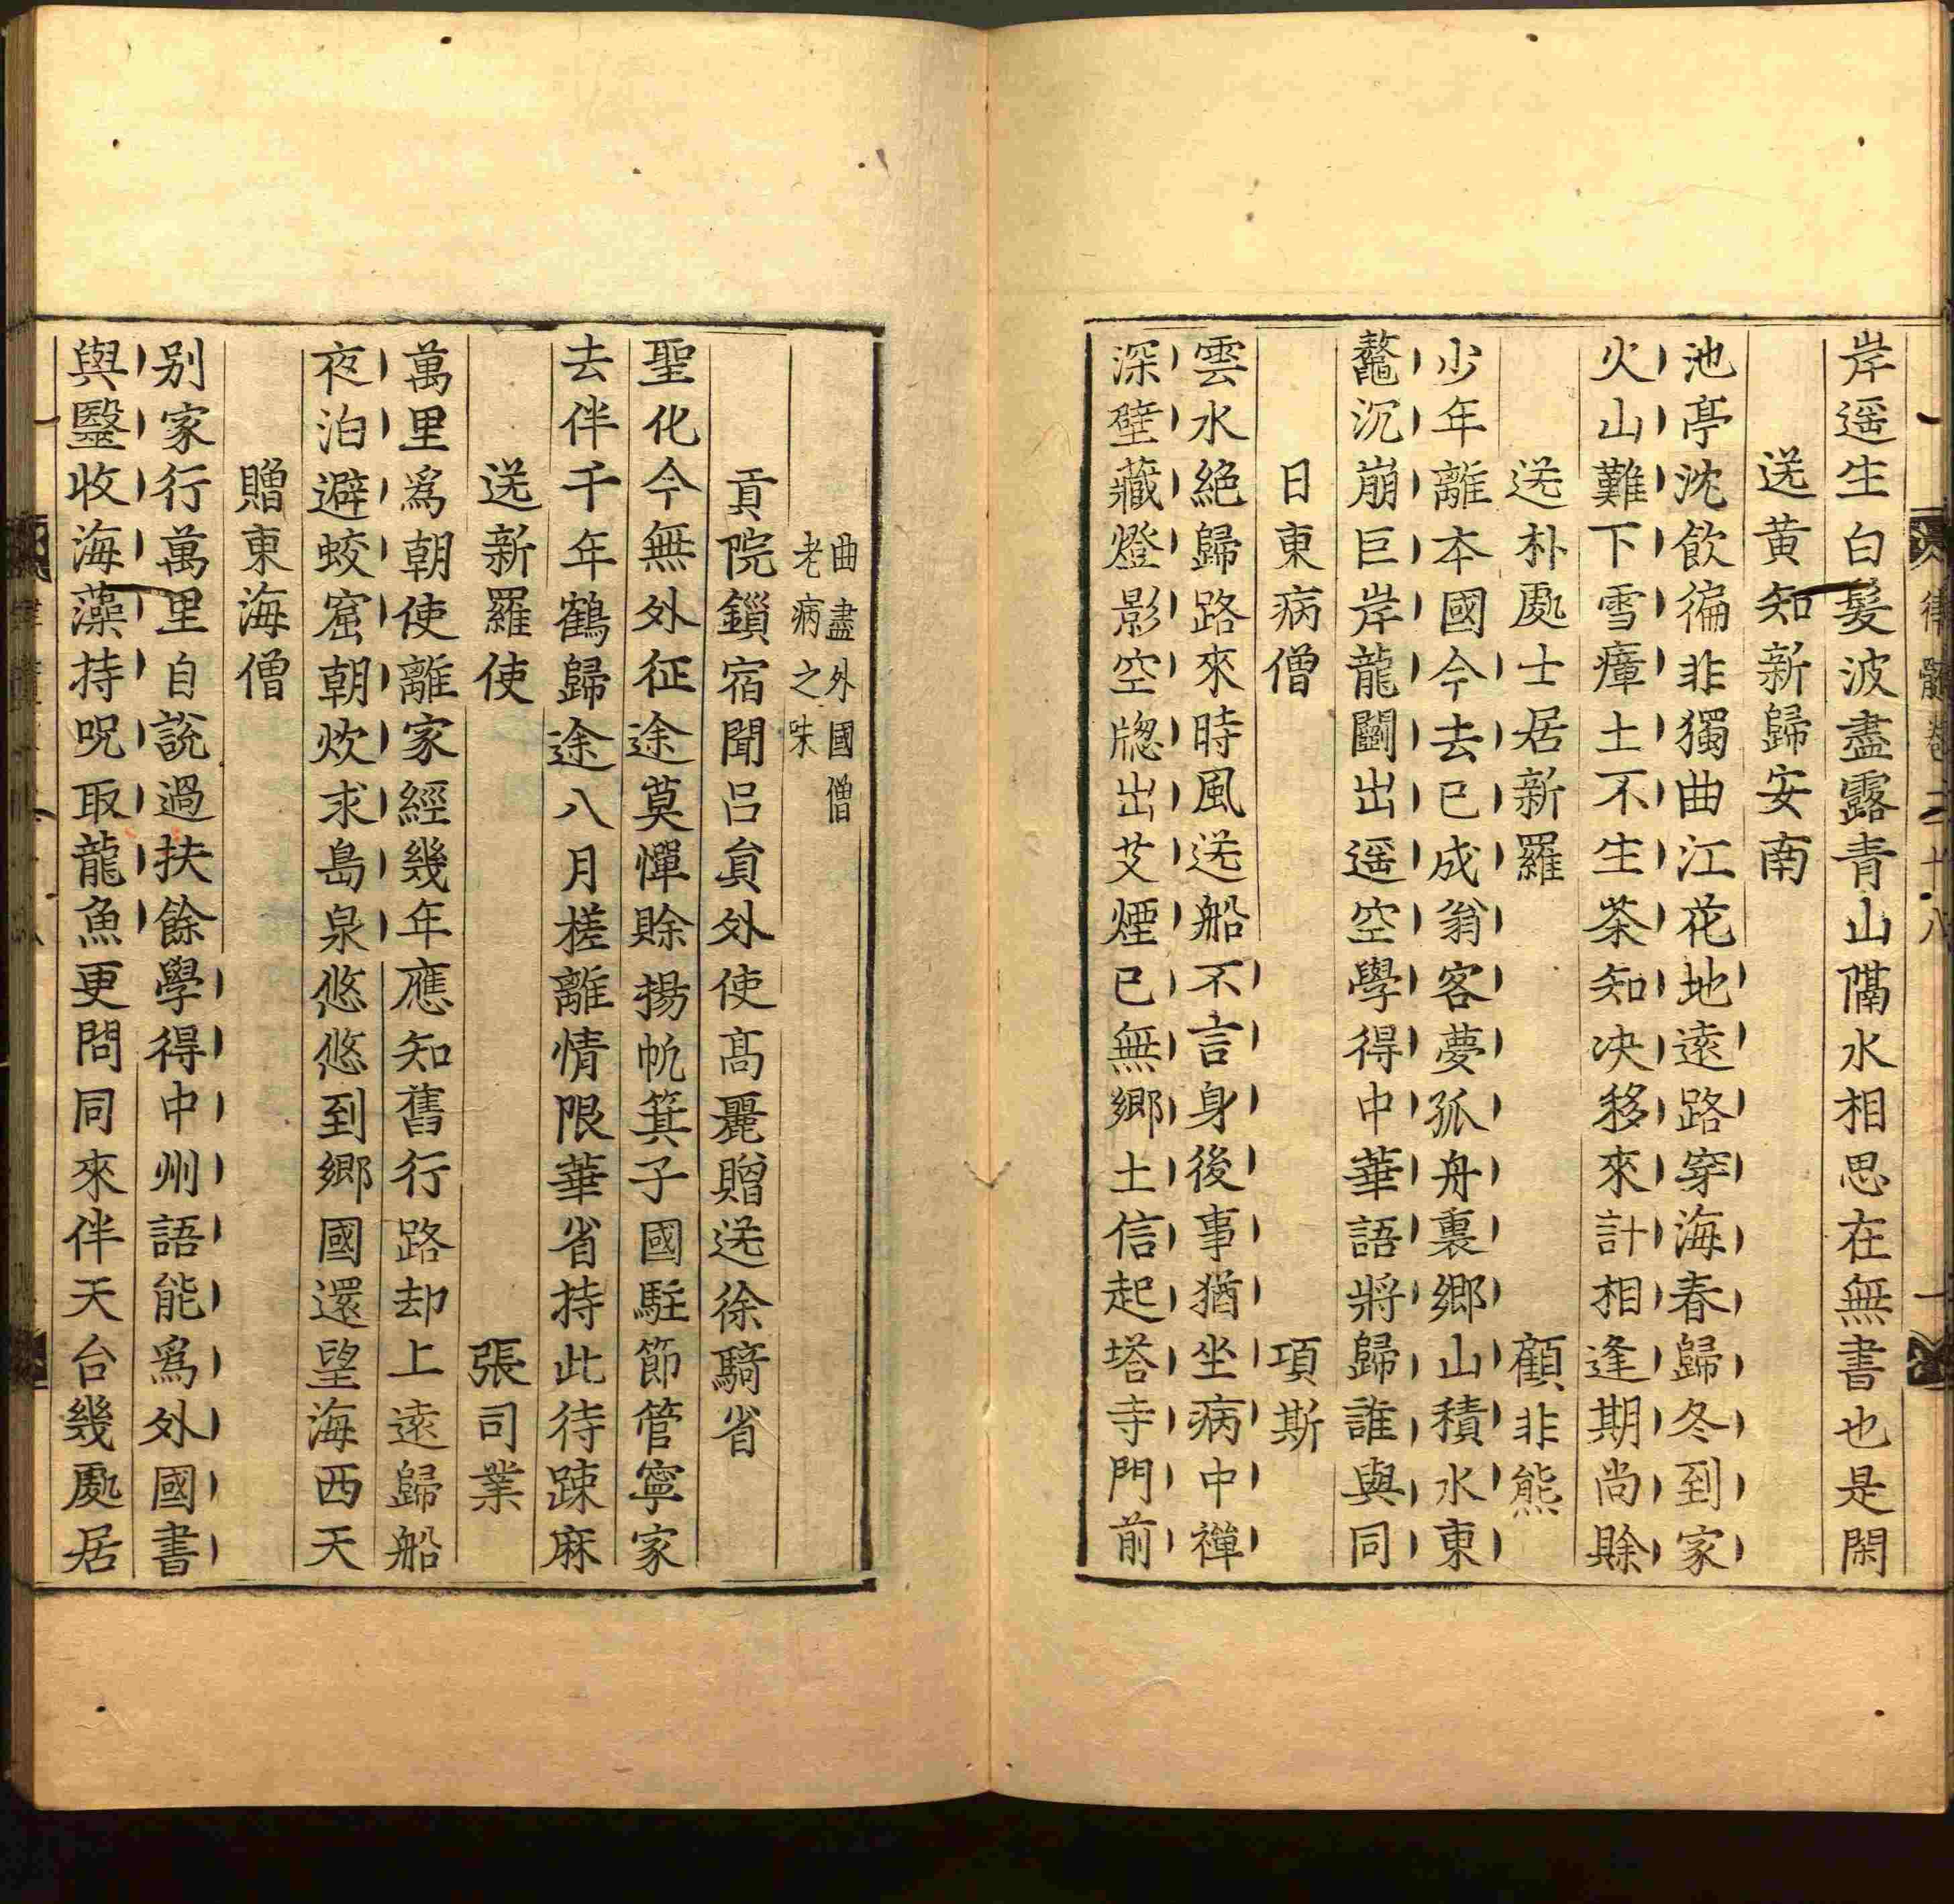 岸遥生白髮波盡露青山隔水相思在無書也是閑
送黄知新歸安南
池亭沈飲徧非獨曲江花地遠路穿海春歸冬到家
火山難下雪瘴土不生茶知决移來計相逢期尚賖
送朴處士居新羅 顧非熊
少年離本國今去已成翁客夢孤舟裏鄉山積水東
鼇沉崩巨岸龍鬭出遥空學得中華語將歸誰與同
日東病僧 項斯
雲水絶歸路來時風送船不言身後事猶坐病中禪
深壁藏燈影空牕出艾煙已無鄉土信起塔寺門前
曲盡外國僧
老病之味
貢院鎖宿聞吕貟外使髙麗贈送徐騎省
聖化今無外征途莫憚賖揚帆箕子國駐節管寧家
去伴千年鶴歸途八月槎離情限華省持此待踈麻
送新羅使 張司業
萬里爲朝使離家經幾年應知舊行路却上遠歸船
夜泊避蛟窟朝炊求島泉悠悠到鄉國還望海西天
贈東海僧
别家行萬里自說過扶餘學得中州語能爲外國書
與毉收海藻持呪取龍魚更問同來伴天台幾處居